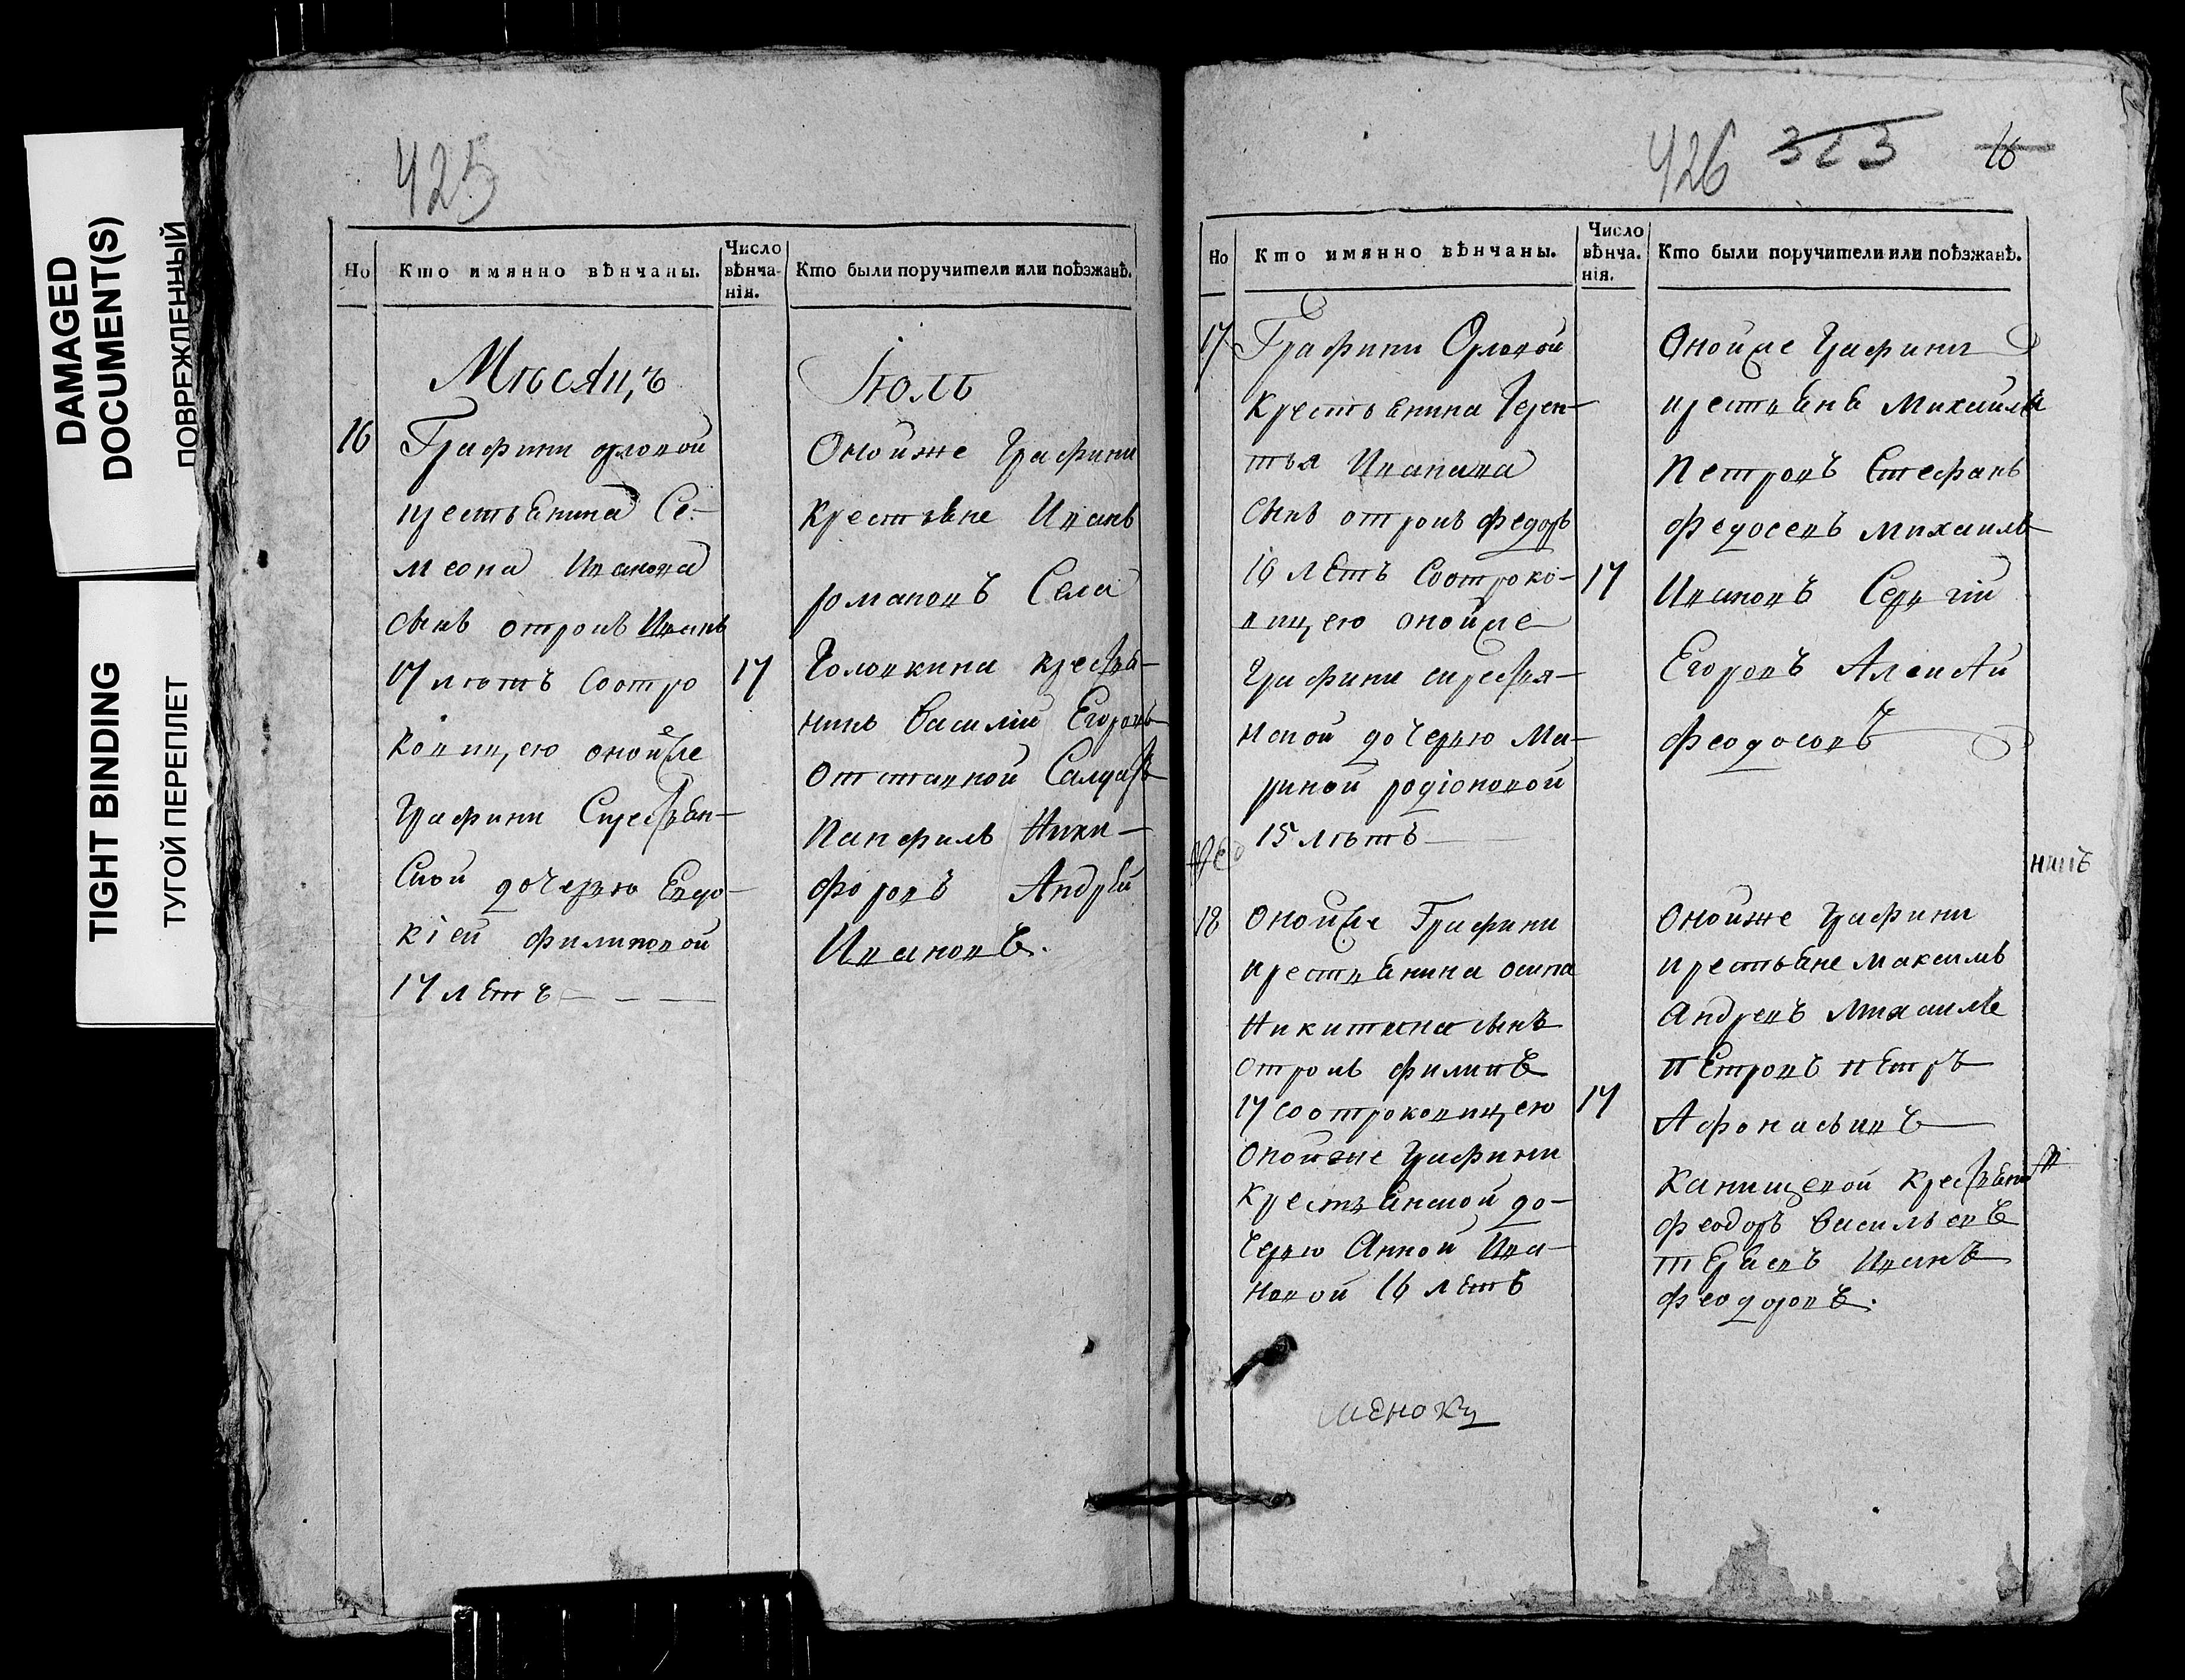 DAMAGED
DOCUMENT(S)
ПОВРЕЖДЕННЫЙ
TIGHT BINDING
ТУГОЙ ПЕРЕПЛЕТ
425
Но
Кто имянно вѣнчаны.
Число
вѣнча-
нія.
Кто были поручители или поѣзжанѣ.
Мѣсяцъ
Іюль
16
Графини орловой
крестьянина Се-
меона Иванова
сынъ отрокъ Иванъ
17 лѣтъ соотро
ковицею онойже
Графини Крестьян-
ской дочерью Евдо-
кіей филиповой
17 лѣтъ
17
Онойже Графини
Крестьяне Иванъ
романовъ Села
Головкина крестья-
нинъ Василій Егоровъ
Отставной Салдатъ
Панфилъ Ники-
форовъ Андрѣй
Ивановъ.
426 323 16
Но
Кто имянно вѣнчаны.
Число
вѣнча.
нія.
Кто были поручители или поѣзжанѣ.
17
Графини Орловой
Крестьянина Терен-
тья Иванова
сынъ отрокъ федоръ
16 лѣтъ Соотроко-
вицею онойже
Графини крестья-
нской дочерью Ма-
риной родіоновой
15 лѣтъ
17
Онойже Графини
крестьянѣ Михаила
Петровъ Стефанъ
федосеевъ михаилъ
Ивановъ Сергій
Егоровъ Алексѣй
феодосовъ
никъ
18
Онойже Графини
крестьянина осипа
Никитина сынъ
отрокъ филипъ
17 соотроковицею
Онойже Графини
Крестьянской до-
черью Анной Ива-
новой 16 лѣтъ
17
Онойже Графини
крестьяне максимъ
Андревъ Михаилъ
пЕтровъ пЕтръ
Афонасьивъ
Канищевой Крестьяне
феодоръ васильевъ
Иванъ
феодоровъ.